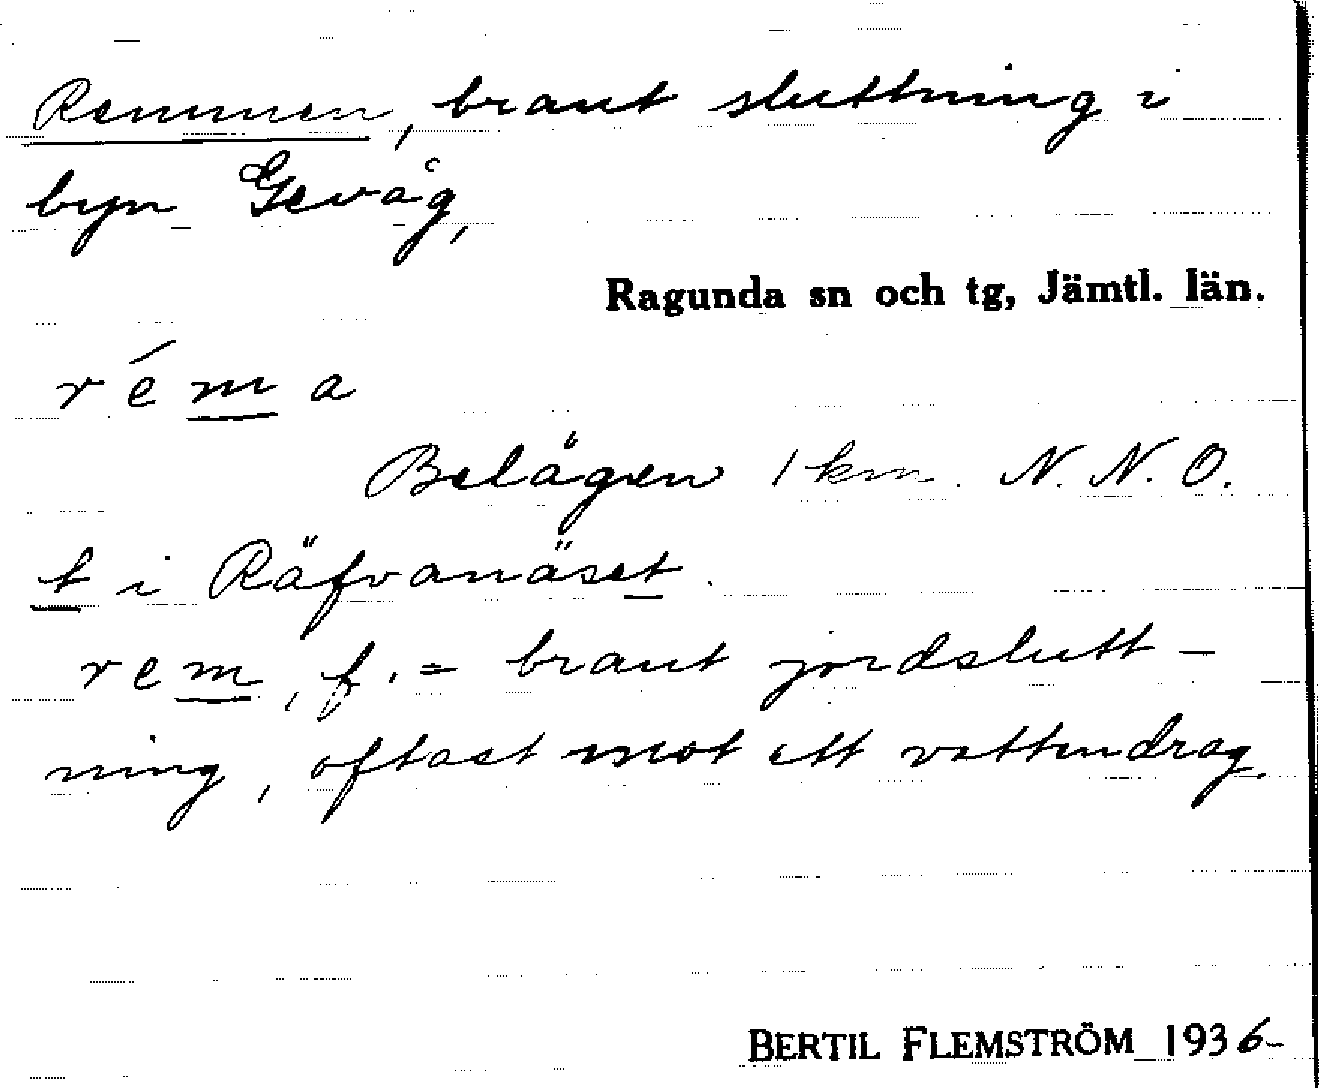 Remmen, brant sluttning i
byn Gevåg,
Ragunda sn och tg, Jämtl. län.
réma
Belägen 1 km. N. N. O.
t i Räfvanäset.
rem, f. = brant jordslutt-
ning, oftast mot ett vattendrag.
BERTIL FLEMSTRÖM 1936